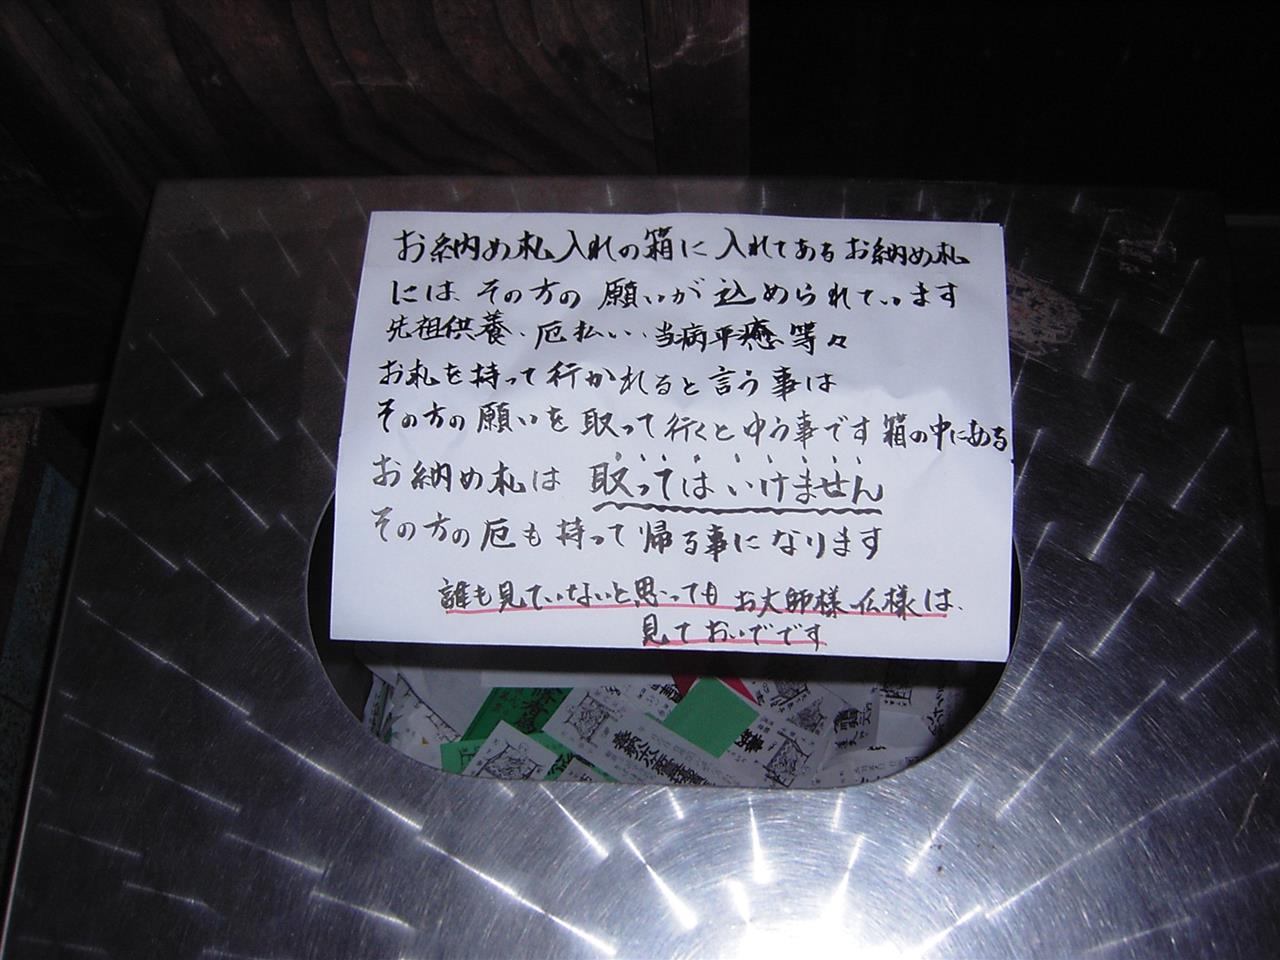 お納め札入れの箱に入れてあるお納め札
には、その方の願いが込められています
先祖供養、厄払い、当病平癒等々
お札を持って行かれると言う事は
その方の願いを取って行くとゆう事です箱の中にある
お納め札は取ってはいけません
その方の厄も持って帰る事になります
誰も見ていないと思ってもお大師様仏様は、
見ておいでです